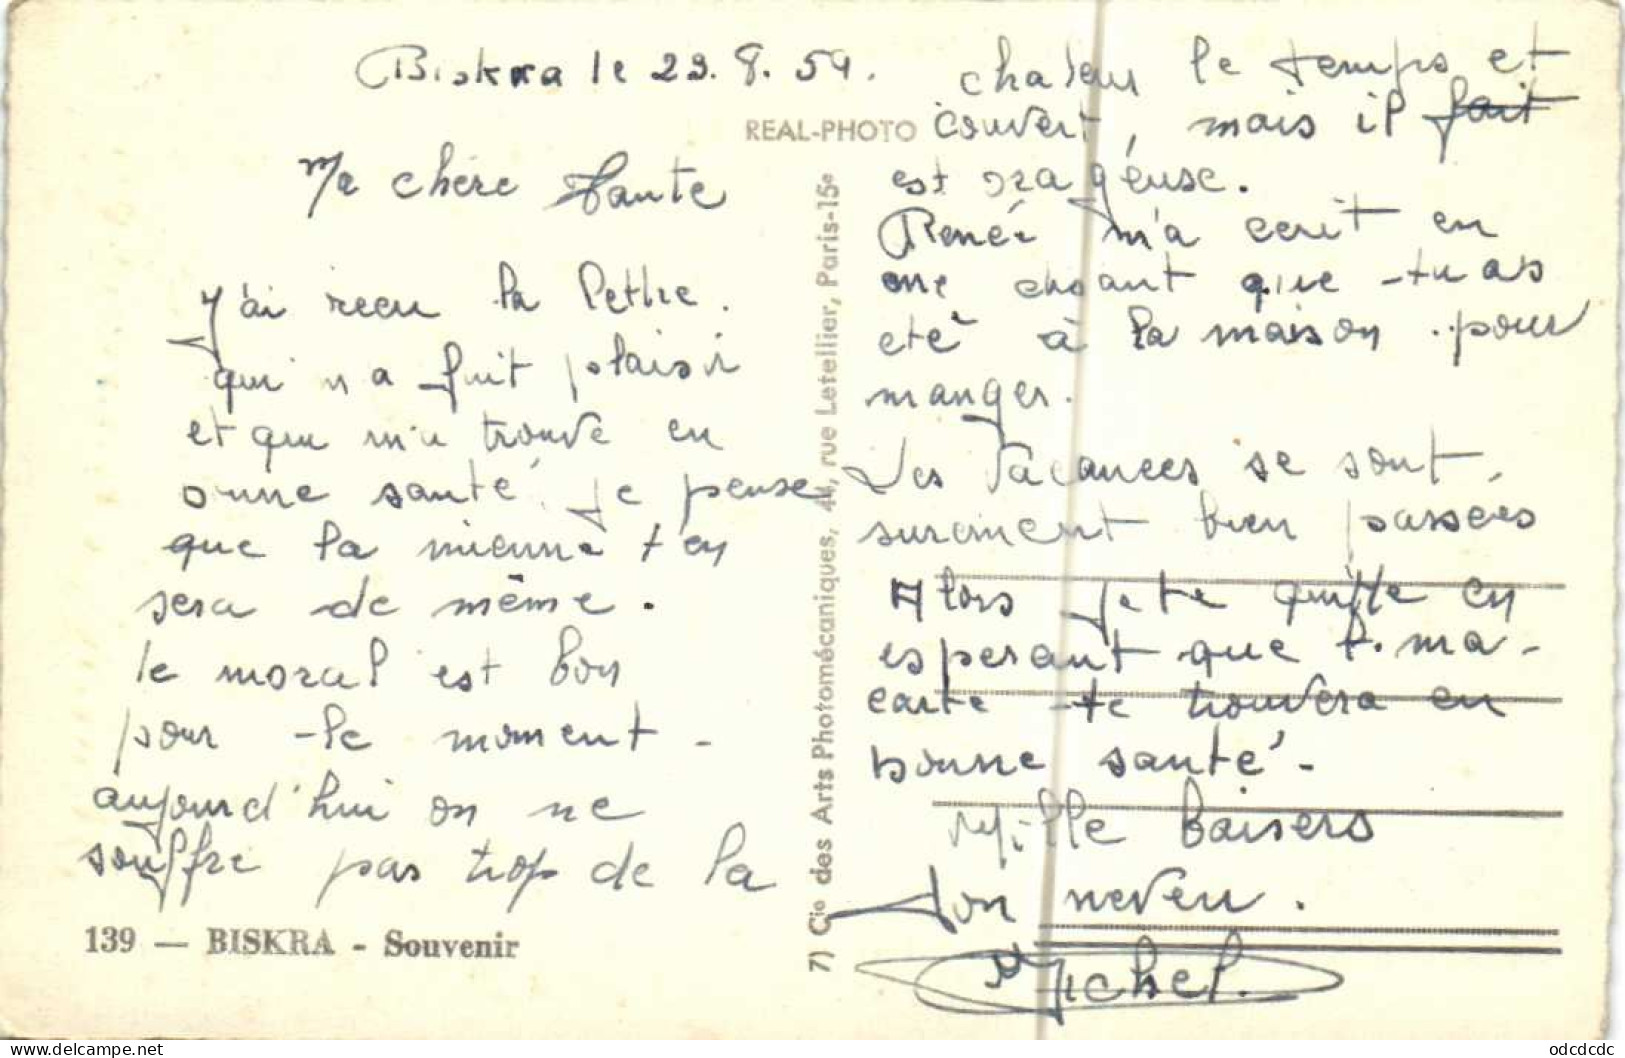 Biskra le 29.8.59.
Ma chère Tante
J'ai recu la lettre.
qui m'a fait plaisir
et qui m'a trouvé en
onne santé je pense
que la mienne t'en
sera de même.
le moral est bon
pour le moment -
aujourd'hui on ne
souffre pas trop de la
139 — BISKRA - Souvenir
REAL-PHOTO
7) Cie des Arts Photomécaniques, 44, rue Letellier, Paris-15e
chaleur le temps et
couvert, mais il fait
est orageuse.
Renée m'a ecrit en
me disant que tu as
eté à la maison pour
manger.
Les Vacances se sont
surement bien passées
Alors je te quitte en
esperant que ma
carte te trouvera en
bonne santé -
Mille baisers
Ton neveu.
Michel.
odcdcdc